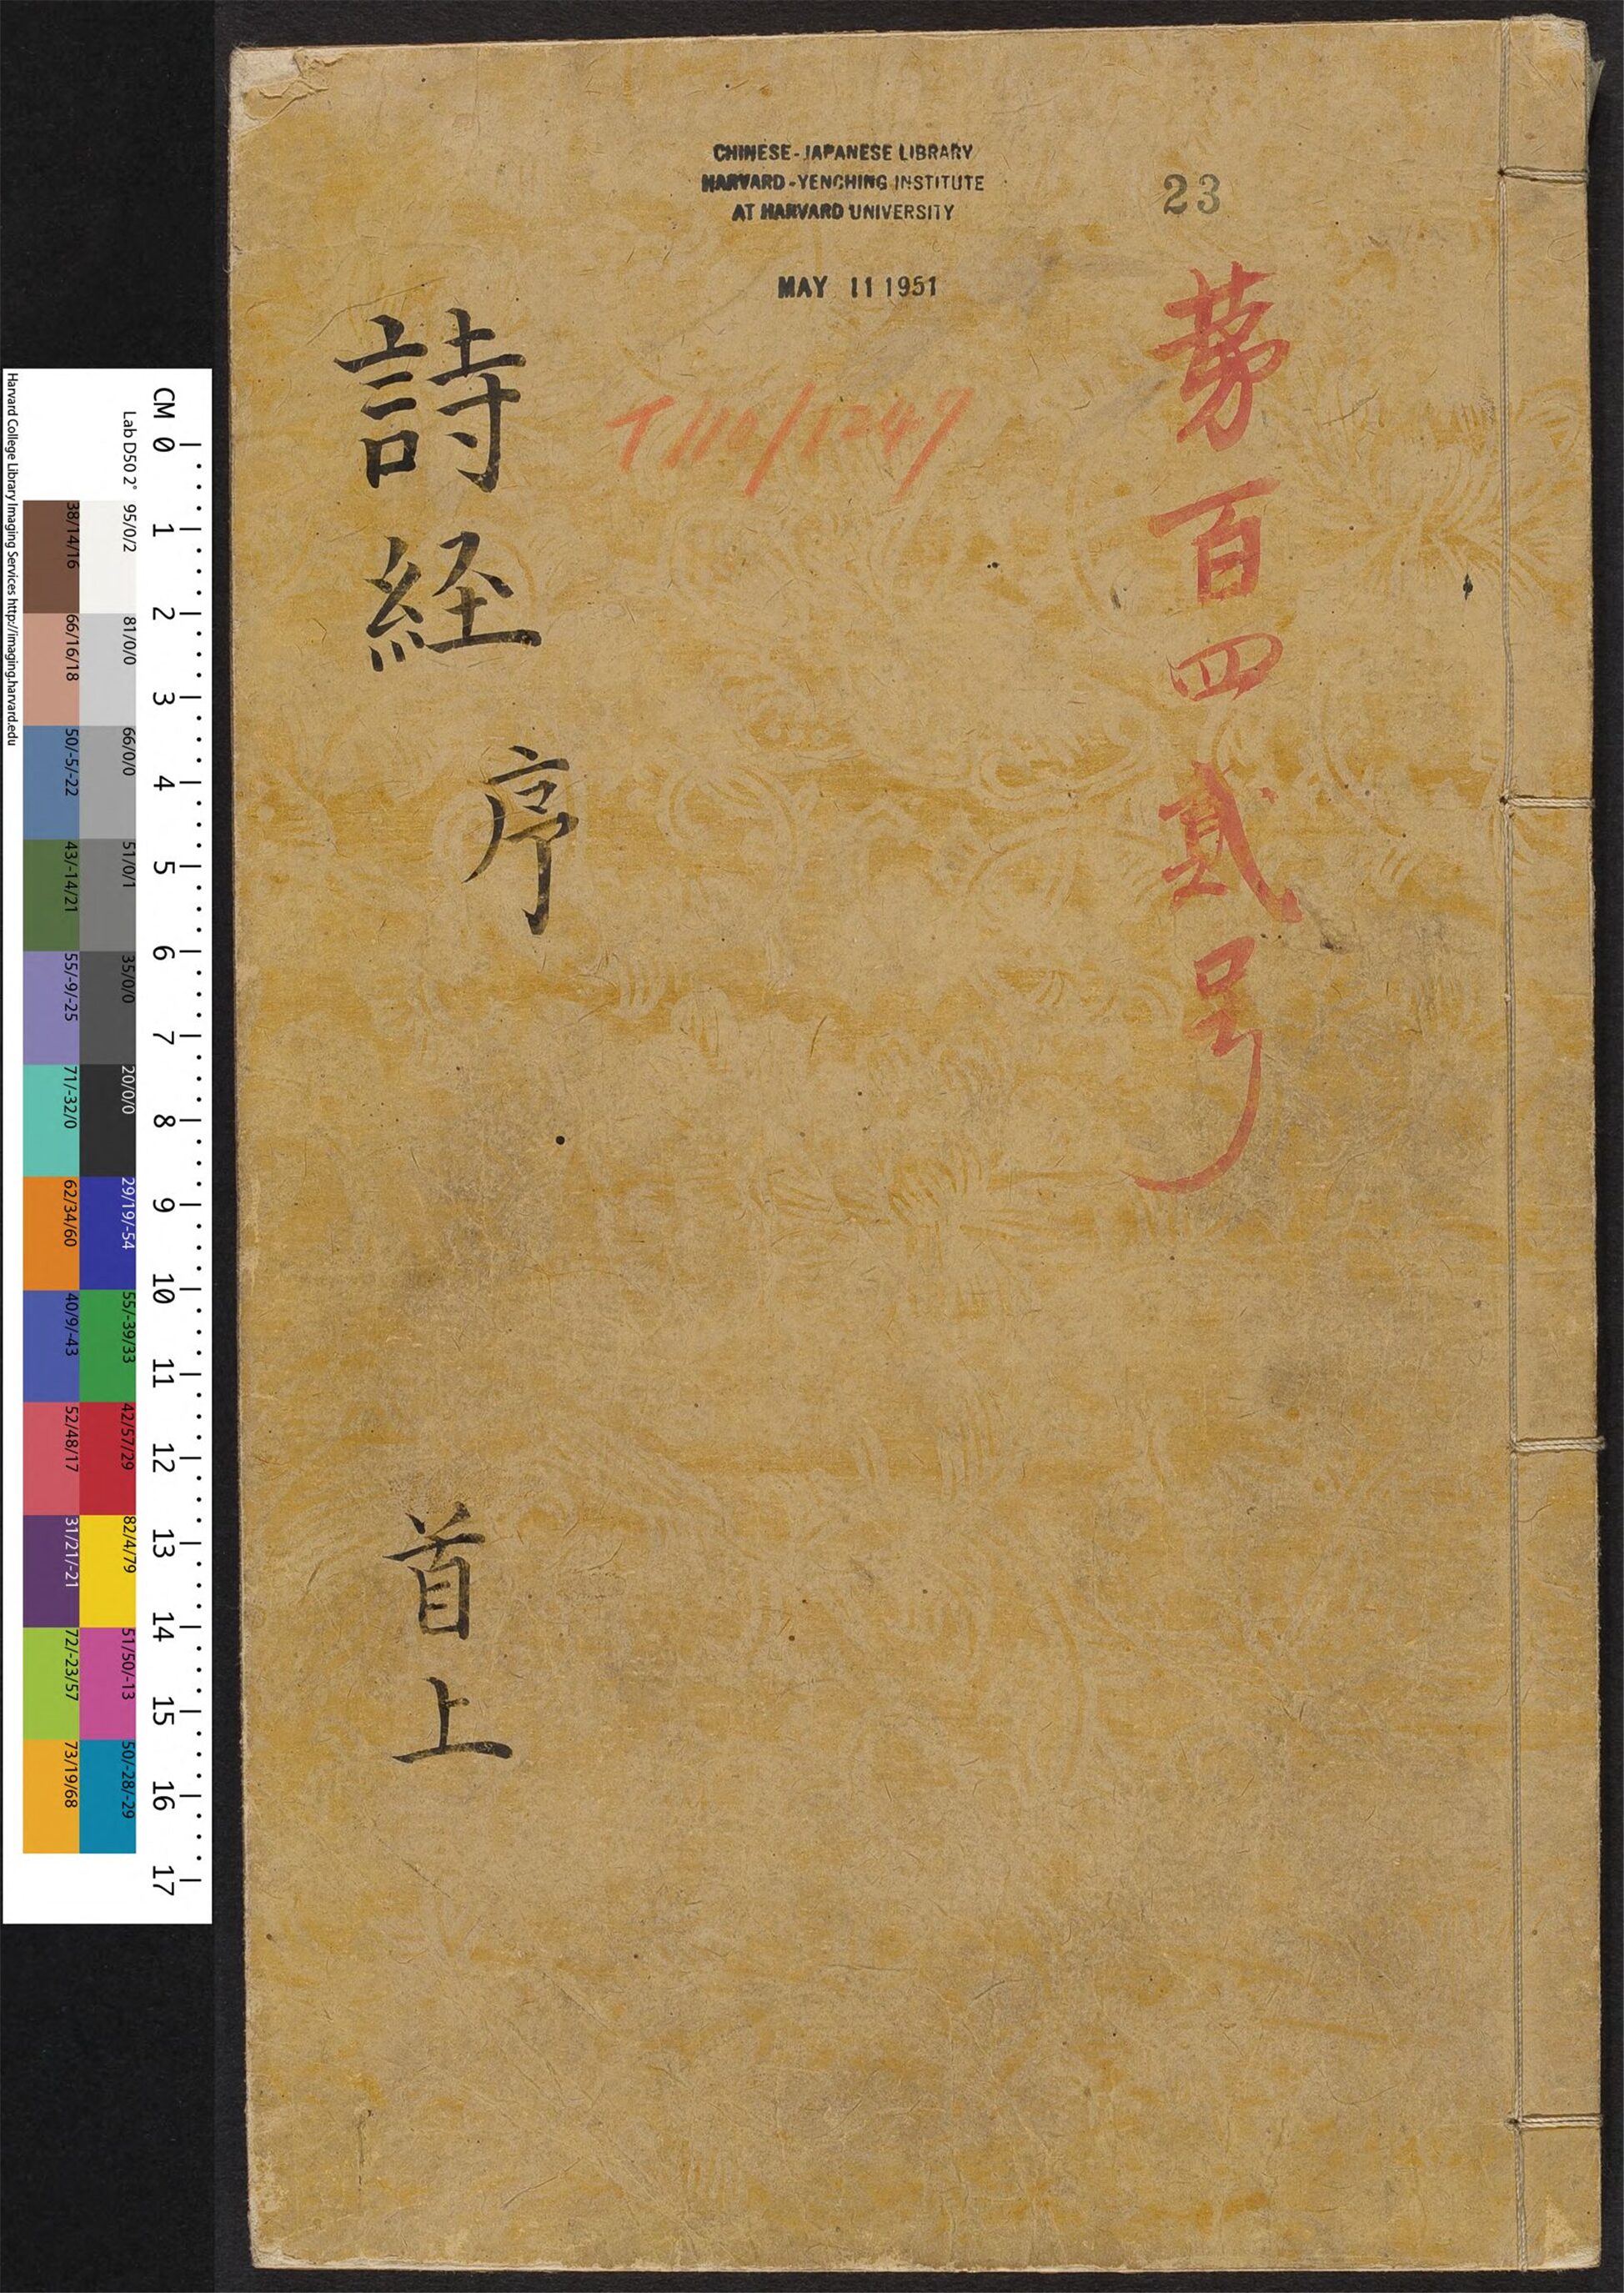 CHINESE-JAPANESE LIBRARY
HARVARD-YENCHING INSTITUTE
AT HARVARD UNIVERSITY
MAY 11 1951
23
第百四貳号
T 116/1249
詩経
序
首上
CM 0 1 2 3 4 5 6 7 8 9 10 11 12 13 14 15 16 17
Lab D50 2° 95/0/2 81/0/0 66/0/0 51/0/1 35/0/0 20/0/0 29/19/-54 55/-39/33 42/57/29 82/4/79 51/50/-13 50/-28/-29
38/14/16 66/16/18 50/-5/-22 43/-14/21 55/-9/-25 71/-32/0 62/34/60 40/9/-43 52/48/17 31/21/-21 72/-23/57 73/19/68
Harvard College Library Imaging Services http://imaging.harvard.edu